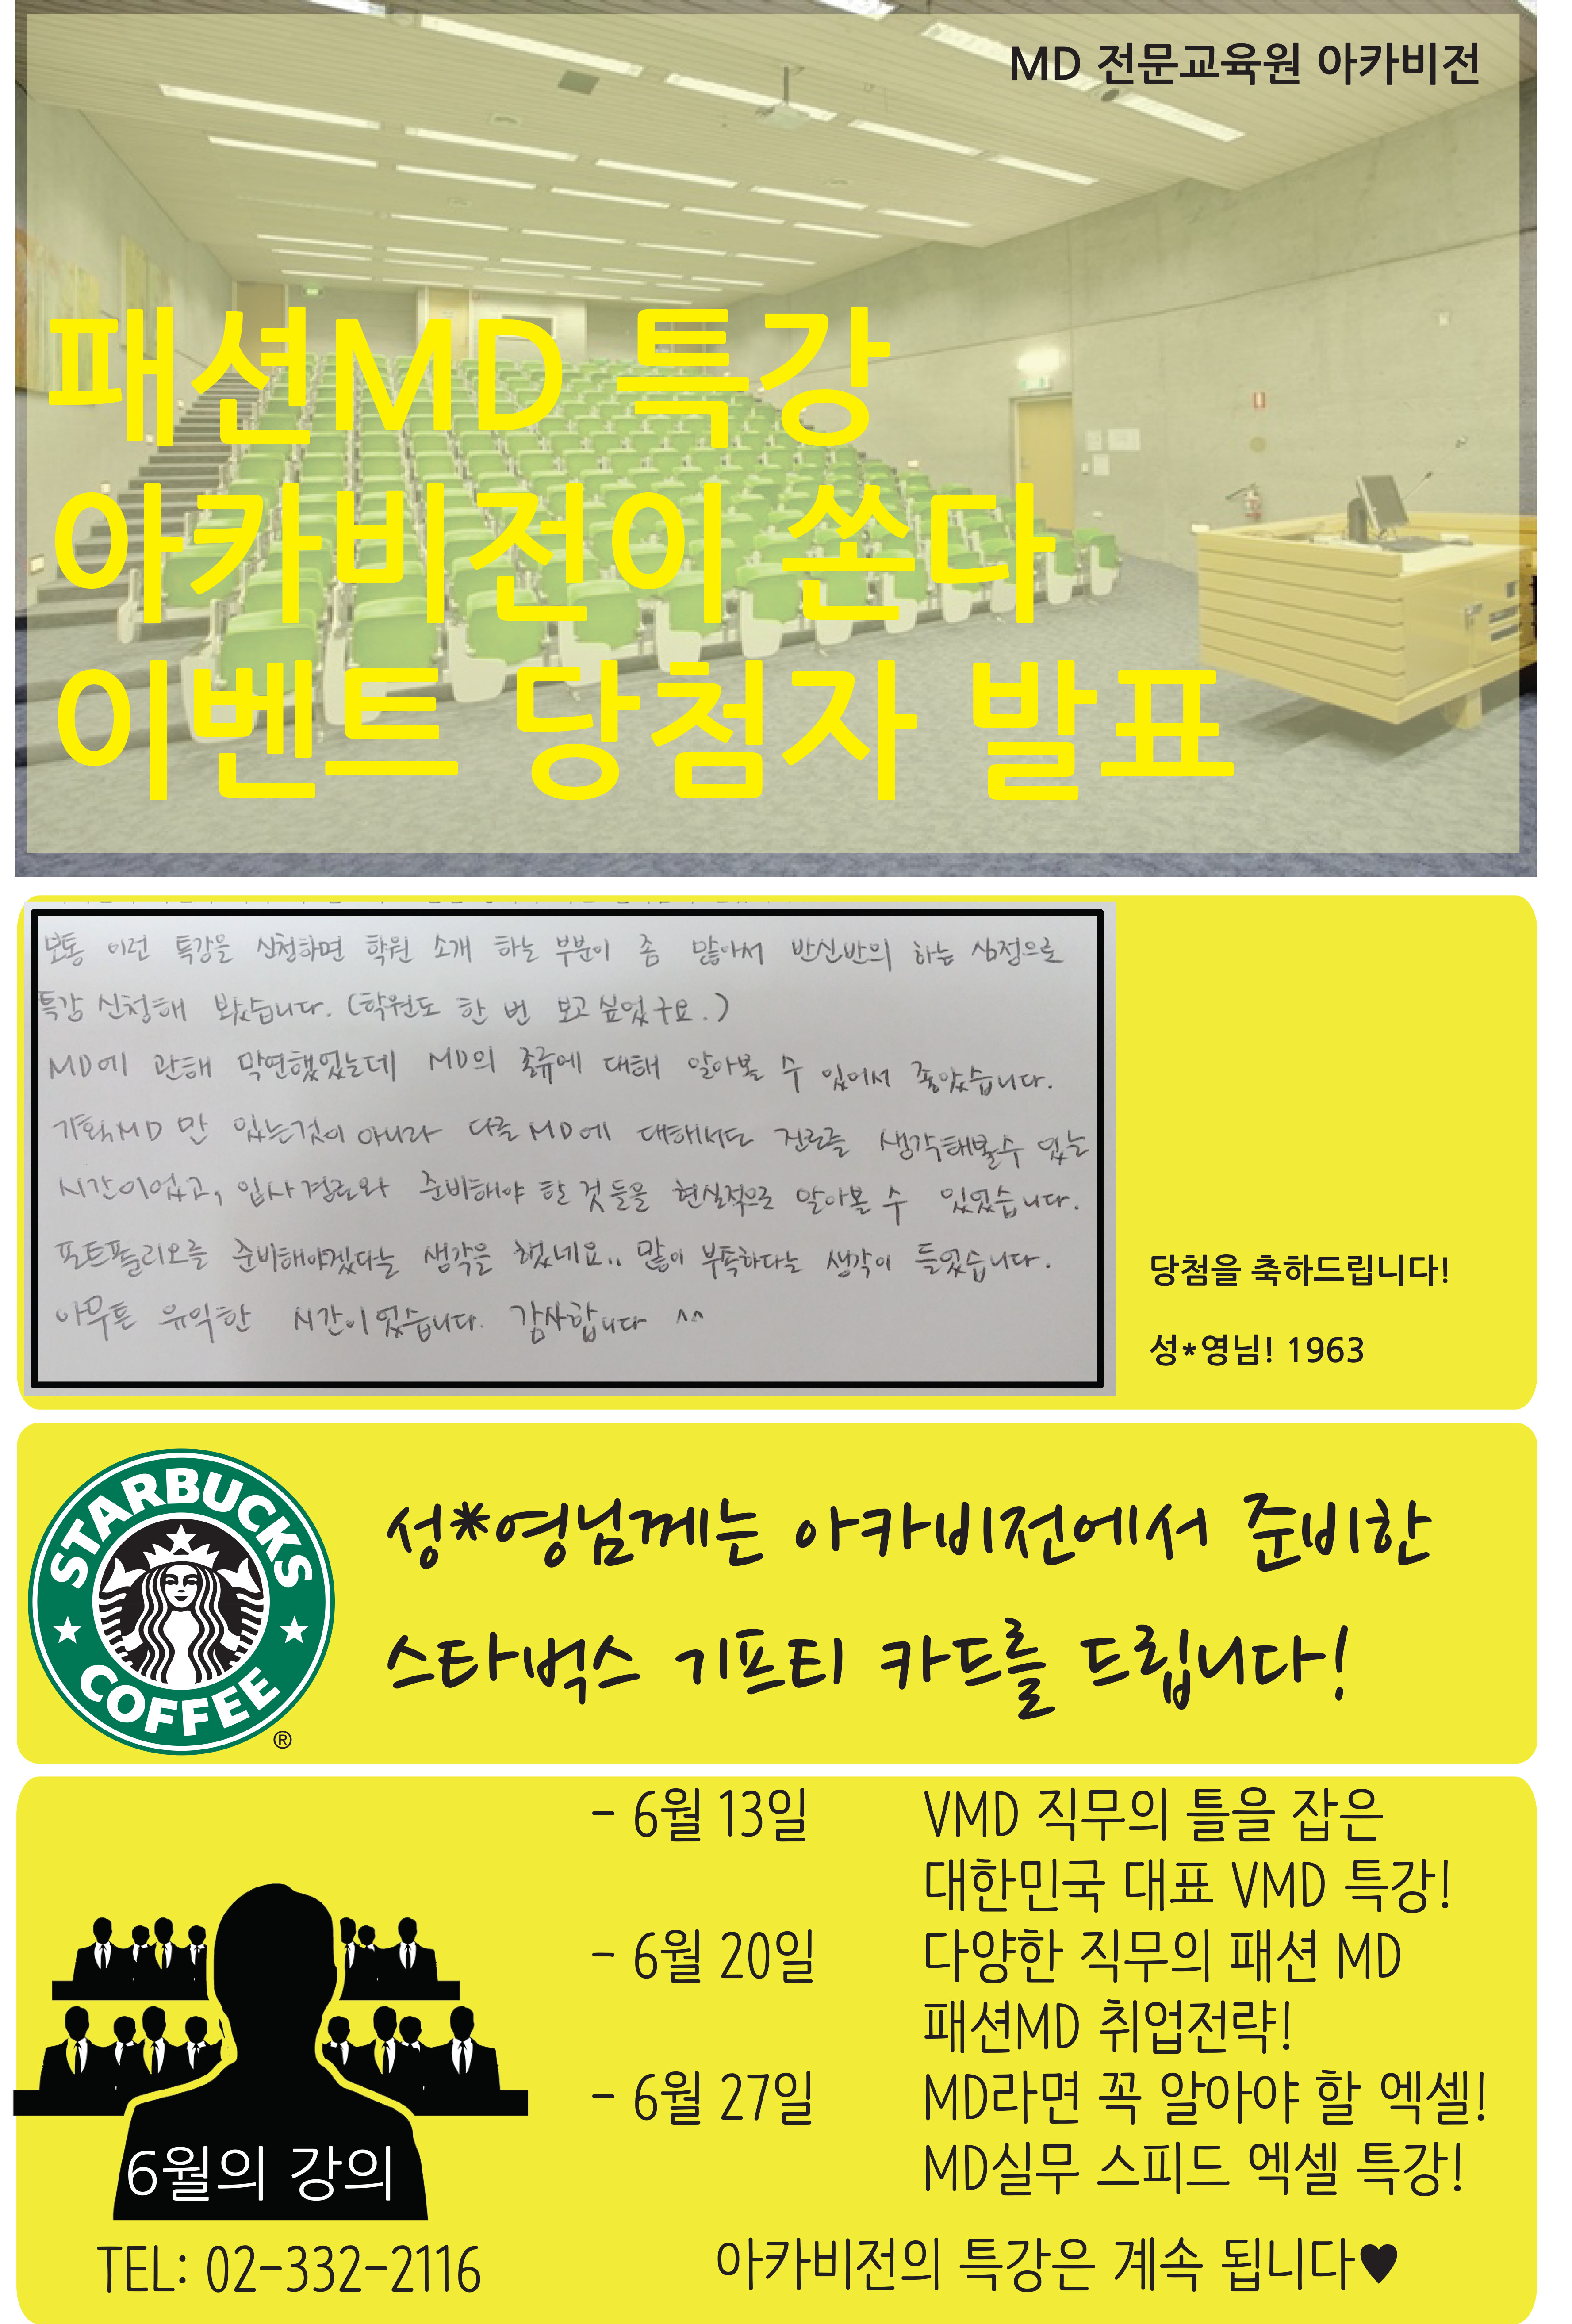 MD 전문교육원 아카비전
패션MD 특강
아카비전이 쏜다
이벤트 당첨자 발표
보통 이런 특강을 신청하면 학원 소개 하는 부분이 좀 많아서 반신반의 하는 심정으로
특강 신청해 봤습니다. (학원도 한 번 보고 싶었구요.)
MD에 관해 막연했었는데 MD의 종류에 대해 알아볼 수 있어서 좋았습니다.
기획MD 만 있는것이 아니라 다른 MD에 대해서도 진로를 생각해볼수 있는
시간이었고, 입사경로와 준비해야 할 것들을 현실적으로 알아볼 수 있었습니다.
포트폴리오를 준비해야겠다는 생각을 했네요.. 많이 부족하다는 생각이 들었습니다.
아무튼 유익한 시간이었습니다. 감사합니다 ^^
당첨을 축하드립니다!
성*영님! 1963
STARBUCKS
COFFEE
®
성*영님께는 아카비전에서 준비한
스타벅스 기프티 카드를 드립니다!
- 6월 13일 VMD 직무의 틀을 잡은
대한민국 대표 VMD 특강!
- 6월 20일 다양한 직무의 패션 MD
패션MD 취업전략!
- 6월 27일 MD라면 꼭 알아야 할 엑셀!
MD실무 스피드 엑셀 특강!
6월의 강의
TEL: 02-332-2116
아카비전의 특강은 계속 됩니다♥